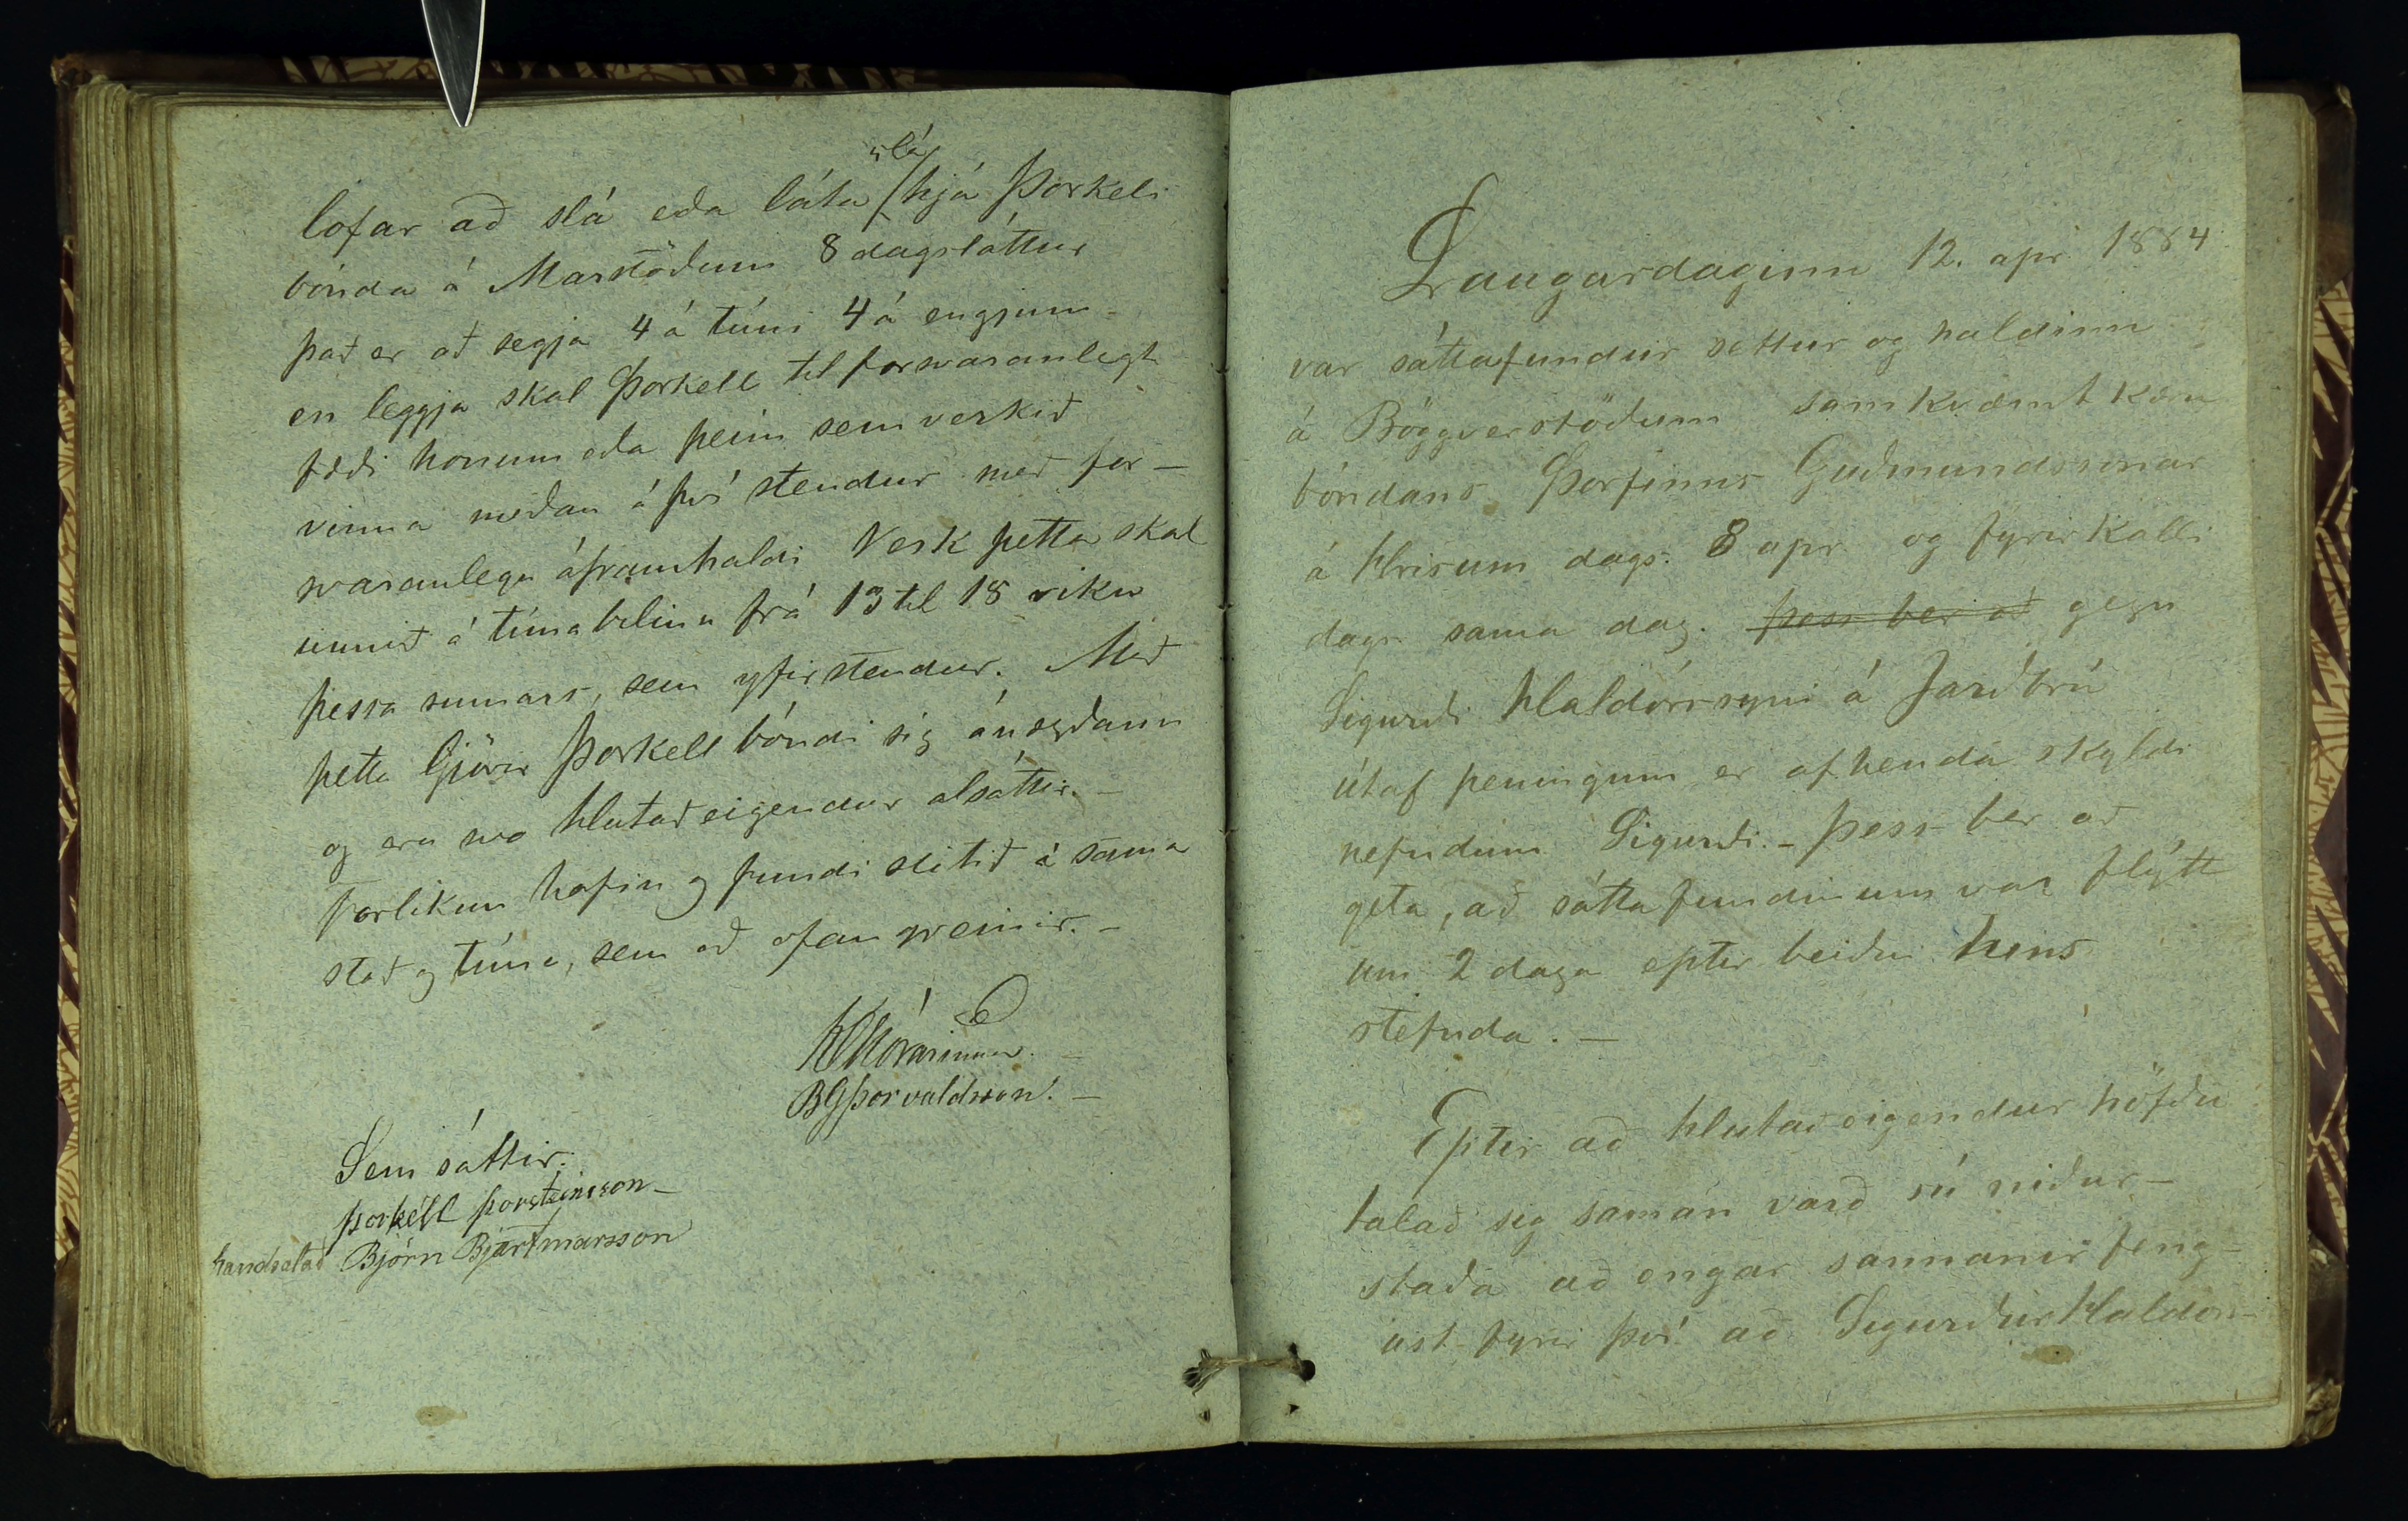 lofar að slá eða láta slá hjá Þorkeli
bónda á Marstöðum 8 dagsláttur
það er að segja 4 á túni 4 á engjum -
en leggja skal Þorkell til forsvaranlegt
fæði honum eða þeim sem verkið
vinna meðan á því stendur með for-
svaranlegu áframhaldi Verk þetta skal
unnið á tímabilinu frá 13 til 18 viku
þessa sumars, sem yfirstendur. Með
þetta Gjörir Þorkell bóndi sig ánægðann
og eru svo hlutaðeigendur alsáttir. -
Forlikun hafin og fundi slitið á sama
stað og tíma, sem að ofan greinir. -
BGÞorvaldsson. -
Sem sáttir:
Þorkéll Þorsteinsson -
handsalað Björn Bjartmarsson
Laugardaginn 12. apr 1884
var sáttafundur settur og haldinn
á Böggverstöðum samkvæmt kæru
bóndans Þorfinns Guðmundssonar
á Hrisum dags. 8 apr. og fyrirkalli
dags. sama dag. þess ber að gegn
Sigurði Haldórssyni á Jarðbrú
útaf peningum er afhenda skyldi
nefndum Sigurði. - Þess ber að
geta, að sáttafundinum var flýtt
um 2 daga eptir beiðni hins
stefnda. -
Eptir að hlutaðeigendur höfðu
talað sig saman varð sú niður-
staða að engar sannanir feng-
ust fyrir því að Sigurður Haldórs-